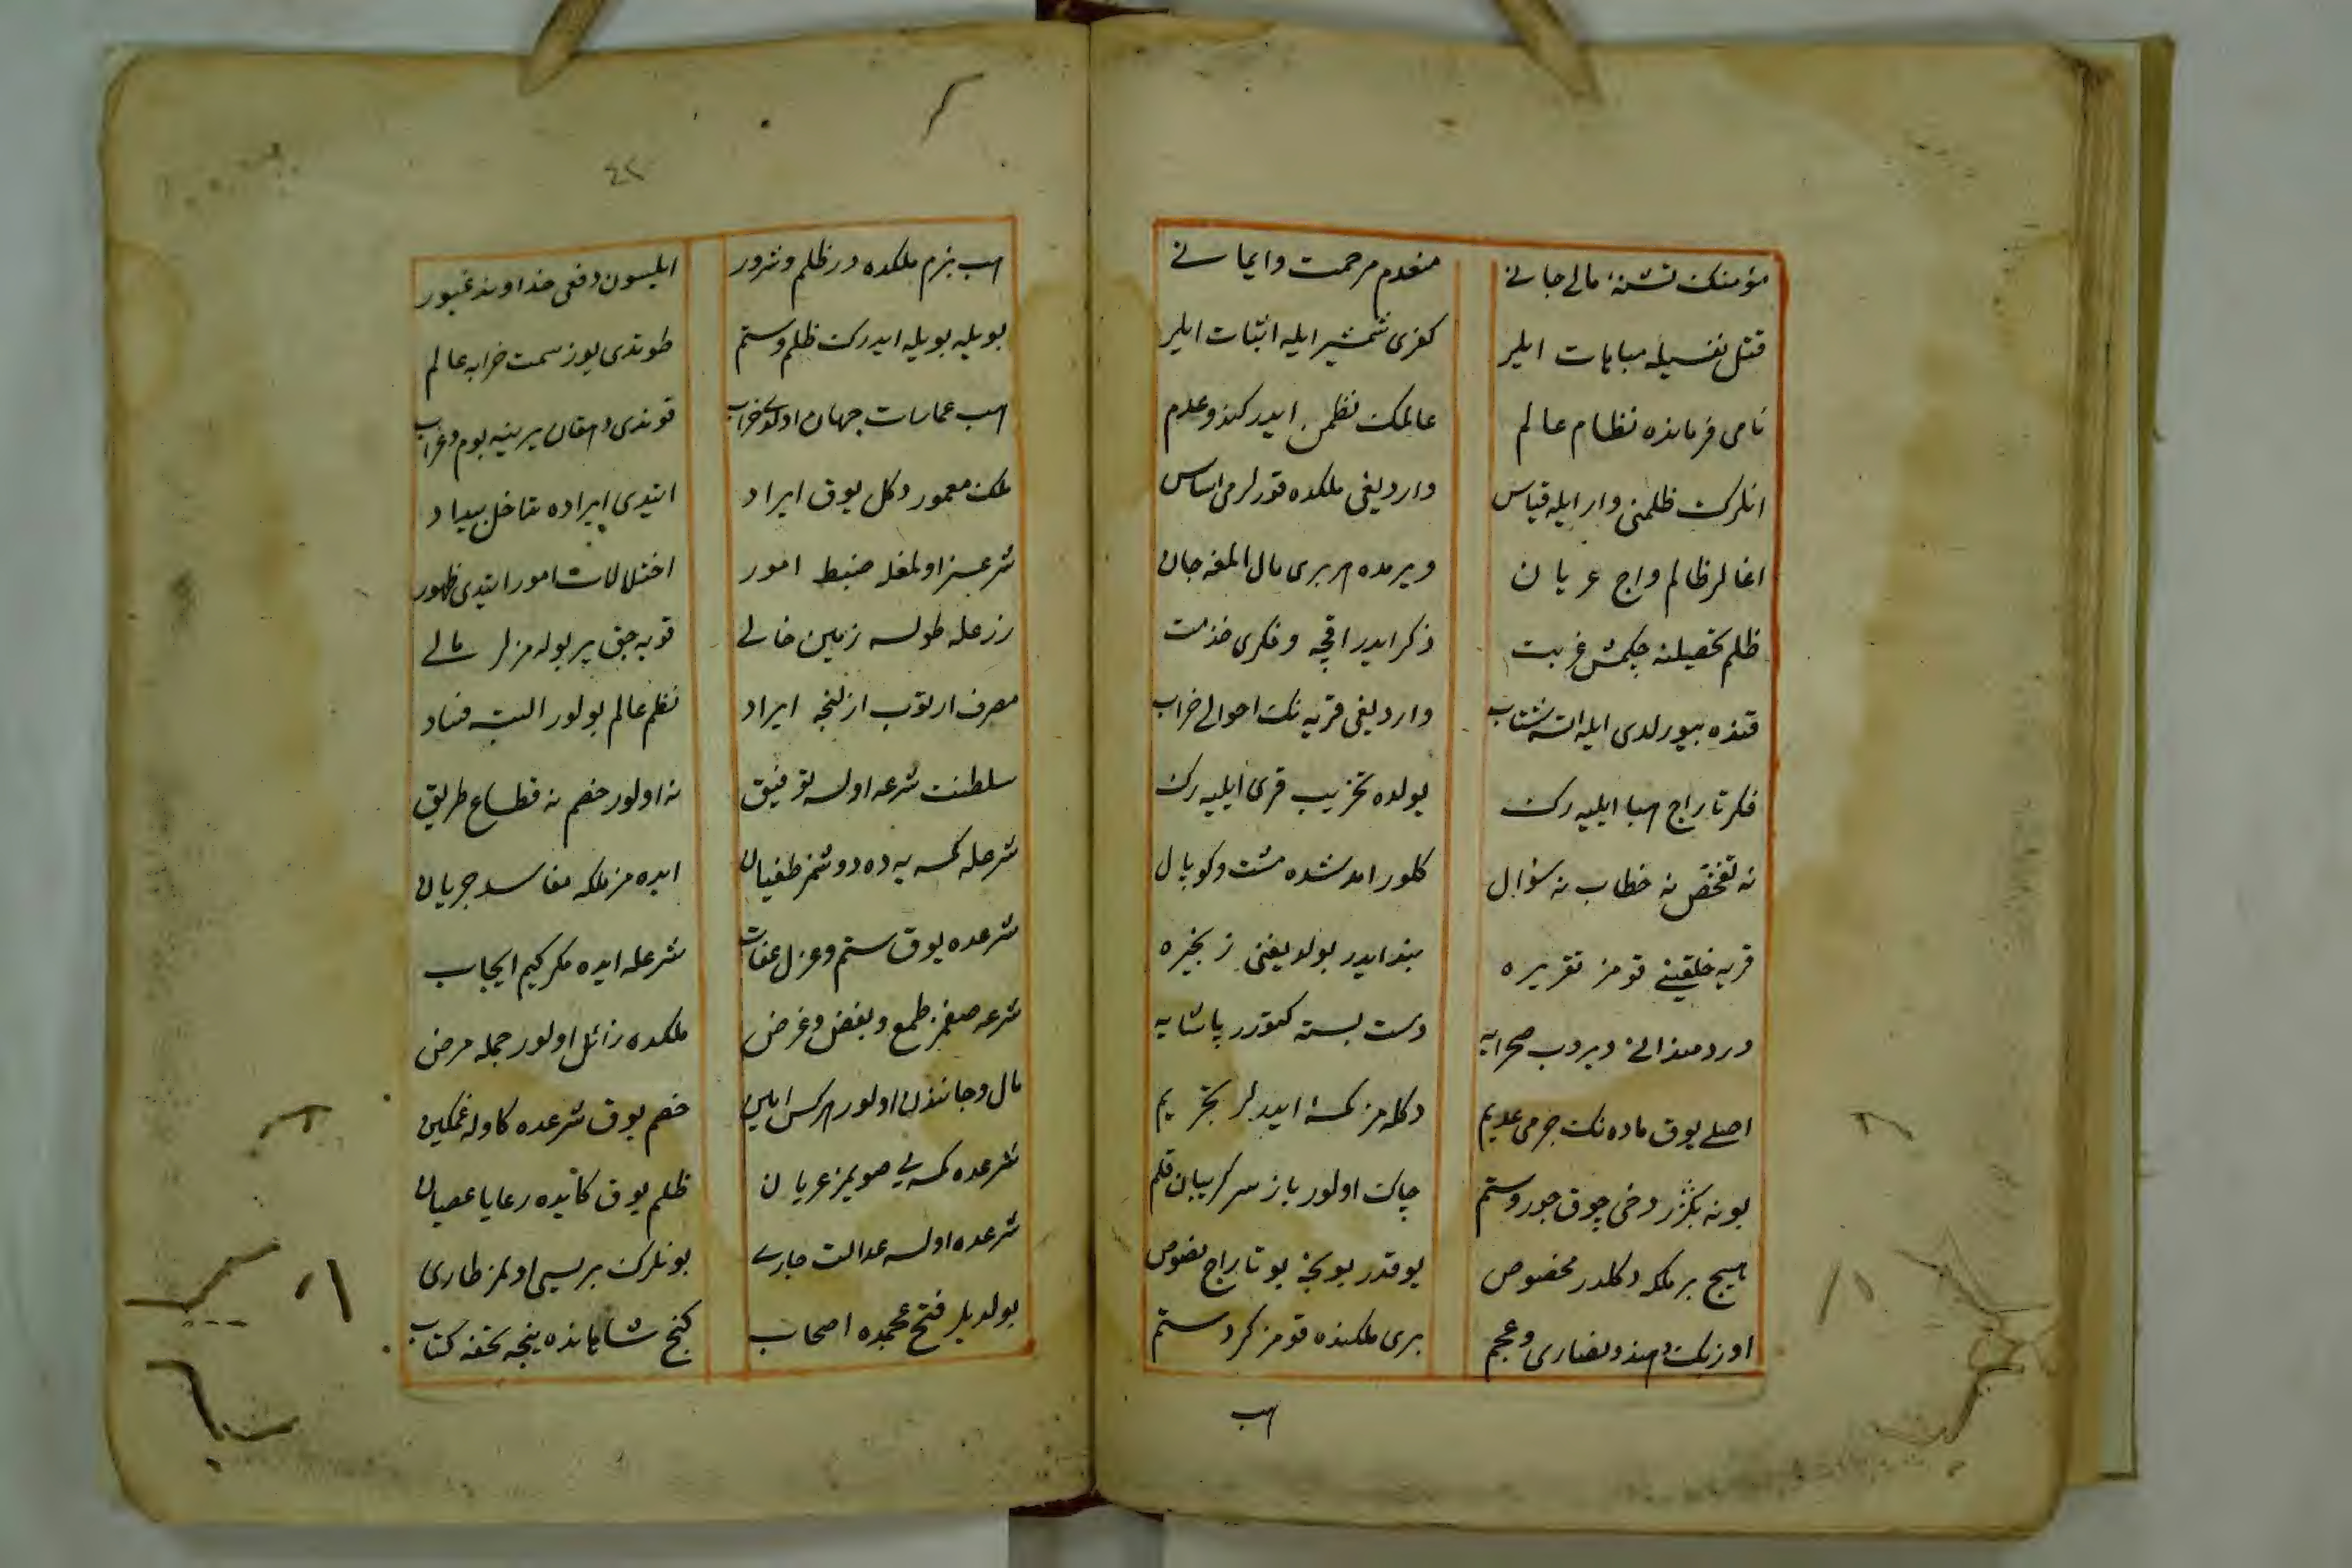 مؤمنك تشنۀ مالی جانی منعدم مرحمت و ایمانی
قتل نفسیله مباهات ایلر کفری شمشیر ایله اثبات ایلر
نامی فرمانده نظام عالم عالمك نظمن ایدر کند و عدم
انلرك ظلمنی وار ایله قیاس واردیغی ملکده قورلرمی اساس
اغالر ظالم و اج عریان ویرمده هر بری مال المغه جان
ظلم تحصیلنه چکمش غربت ذکر ایدر اقچه و فکری خذمت
قنده بیورلدی ایله اته شتاب واردیغی قریه نك احوالی خراب
فکر تاراج هبا ایلیه رك یولده تخریب قری ایلیه رك
نه تفحص نه خطاب نه سؤال کلور امدشده مشت و کوپال
قریه خلقینی قومز تقریره بند ایدر بولدیغنی زنجیره
دردمند الی ویروب صحرایه دست بسته کتورر پاشایه
اصلی یوق ماده نك جرمی عدیم دکله مز کمسه ایدرلر تجریم
بونه بکزر دخی چوق جور و ستم چاك اولور یاز سر کریبان قلم
هیچ بر ملکه دکلدر مخصوص یوقدر بونجه بو تاراج نصوص
اوزبك و هند و نصاری و عجم بری ملکنده قومز کرد ستم
هب
٤٢
هب بزم ملکده در ظلم و شرور ایلسون دفعی خداوند غیور
بویله بویله ایدرك ظلم و ستم طوتدی یوز سمت خرابه عالم
هب عمارات جهان اولدی خراب قوندی دهقان یرینه بوم و غراب
ملك معمور دکل یوق ایراد ایتدی ایراده تداخل بیداد
شرعسز اولمغله ضبط امور اختلالات امور ایتدی ظهور
رزعله طولسه زمین خالی قویه جق یر بوله مزلر مالی
مصرف ارتوب ازلنجه ایراد نظم عالم بولور البت فساد
سلطنت شرعه اولسه توفیق نه اولور خصم نه قطاع طریق
شرعله کمسه یه ده دوشمز طغیان ایده مز ملکه مفاسد جریان
شرعده یوق ستم و عزل عقاب شرعله ایده مکر کیم ایجاب
شرعه صغمز طمع و بغض و غرض ملکده زائل اولور جمله مرض
مال و جانندن اولور هرکس امین خصم یوق شرعده کاوله غمکین
شرعده کمسه یی صویمز عریان ظلم یوق کاتیده رعایا عصیان
شرعده اولسه عدالت جاری بونلرك بریسی اولمز طاری
بولدیلر فتح عجمده اصحاب کنج شاهانده نیجه تحفه کتاب